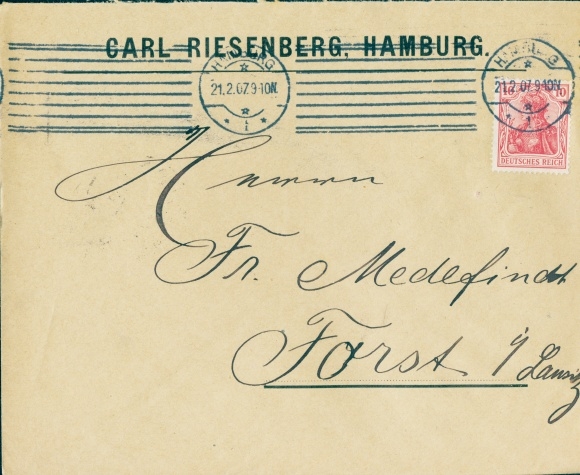 CARL RIESENBERG, HAMBURG.
HAMBURG
21.2.07.9-10N.
1
HAMBURG
21.2.07.9-10N.
1
10 10
DEUTSCHES REICH
Herrn
Fr. Medefindt
Forst i/
Lausitz